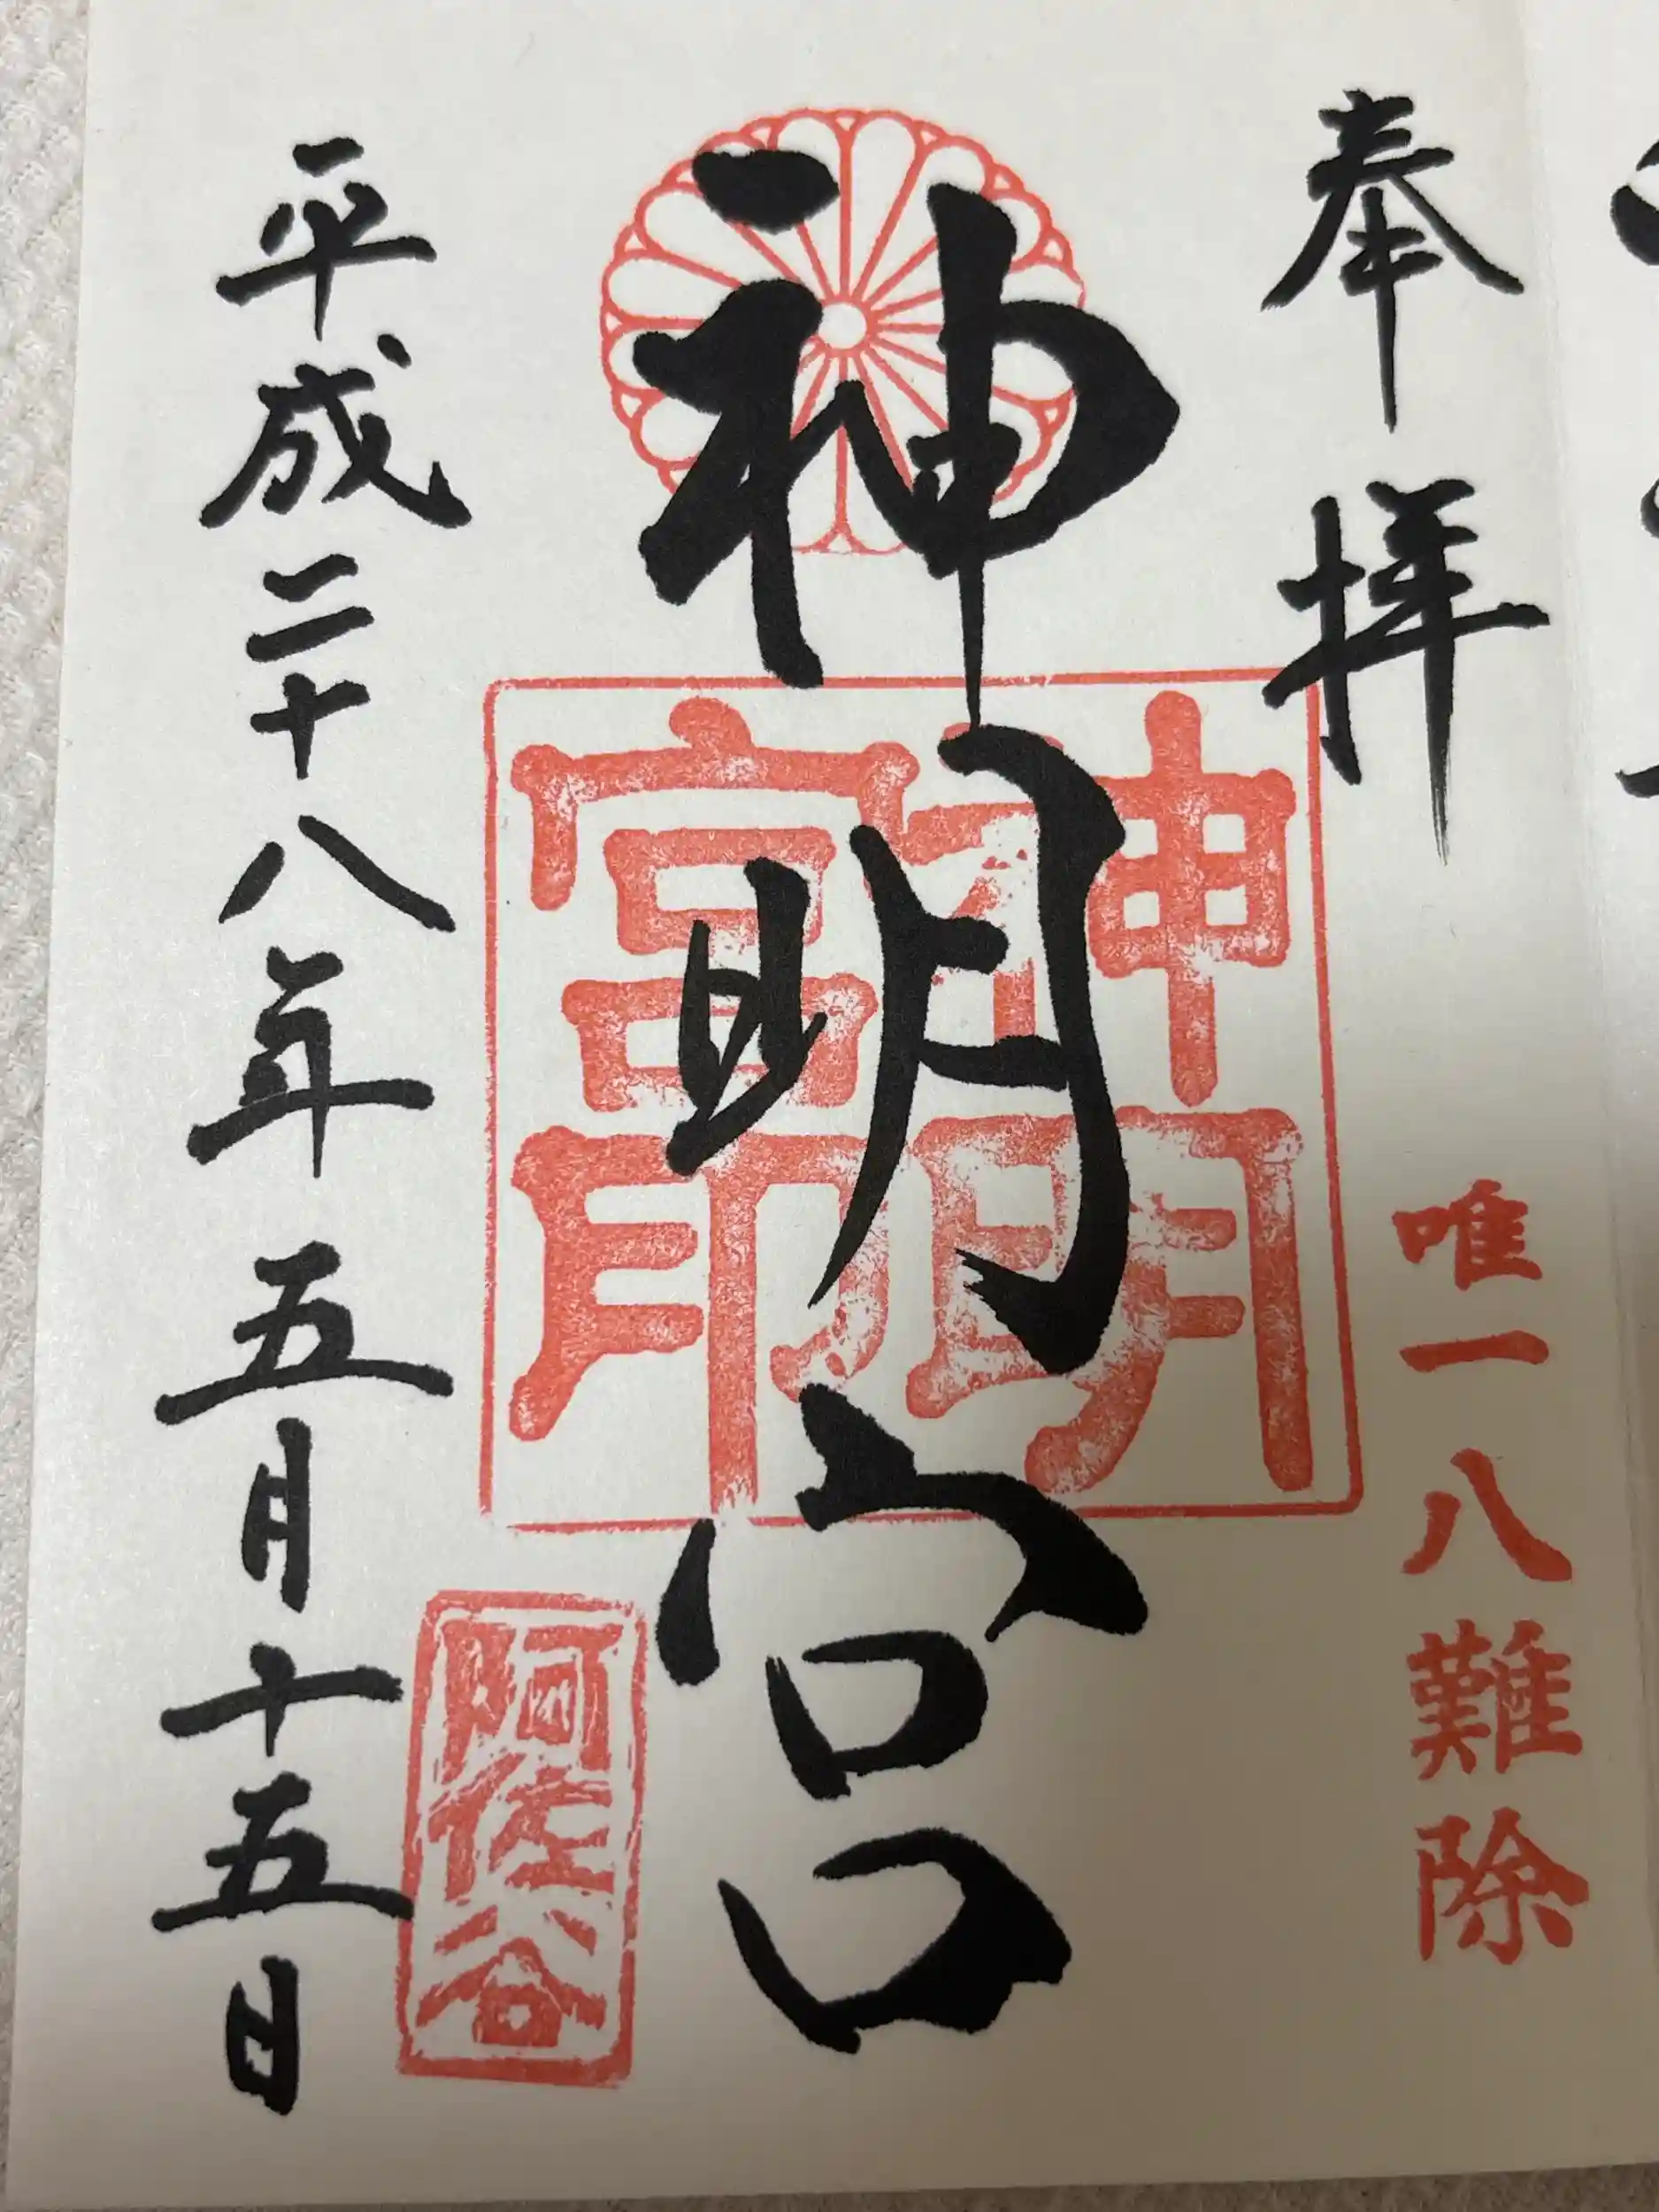 奉拝
唯一八難除
神明宮
神明
宮印
阿佐谷
平成二十八年五月十五日